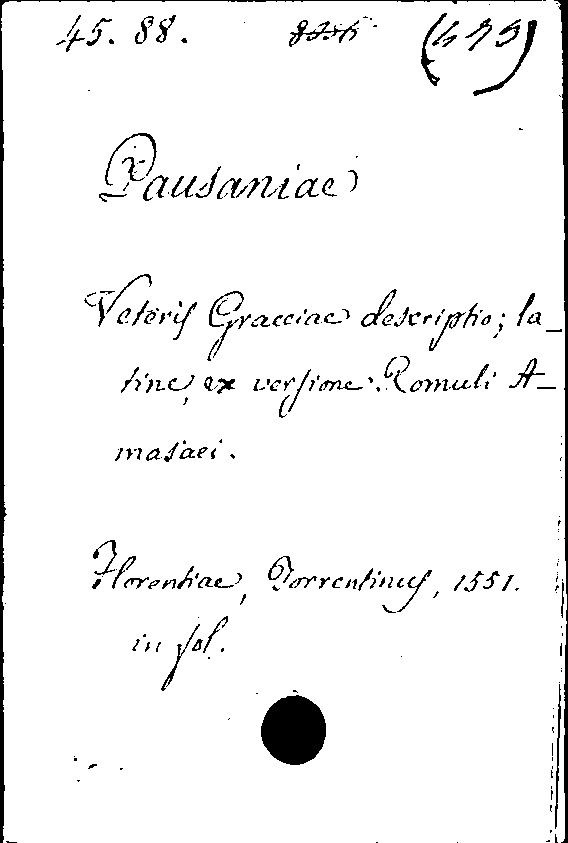 45. 88.
Pausaniae
Veteris Graeciae descriptio; la_
tine, ex versione Romuli A_
masaei.
Florentiae, Torrentinus, 1551.
in fol.